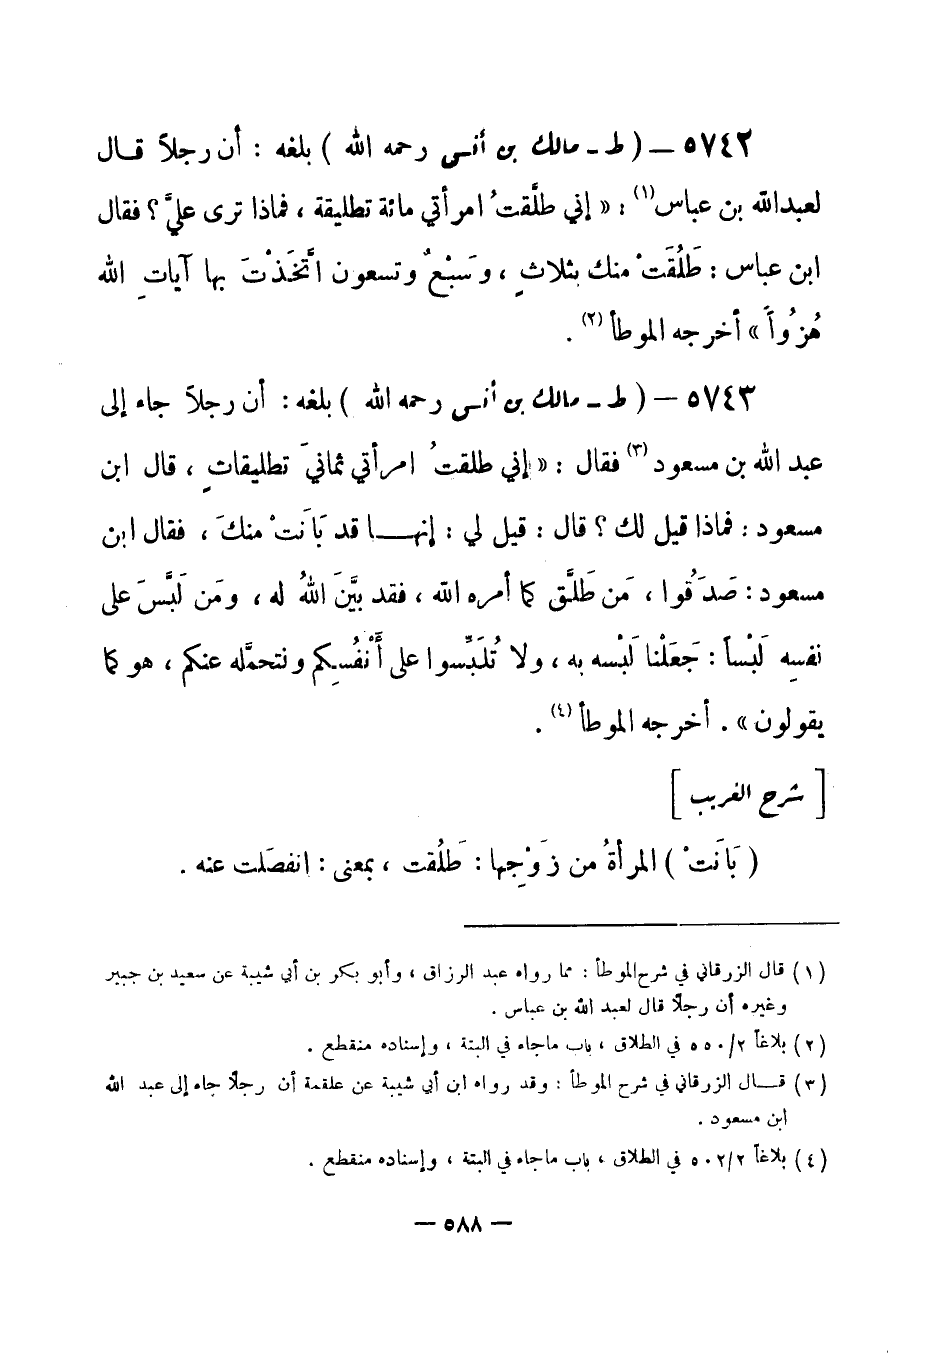 ٥٧٤٢ – ( ط - مالك بن أنس رحمه الله ) بلغه : أن رجلاً قال
لعبدالله بن عباس(١) : « إني طلَّقتُ امرأتي مائة تطليقة ، فماذا ترى عليَّ ؟ فقال
ابن عباس : طَلُقَتْ منك بثلاثٍ ، وسَبْعٌ وتسعون اتَّخَذْتَ بها آياتِ الله
هُزُواً » أخرجه الموطأ (٢) .
٥٧٤٣ – ( ط - مالك بن أنس رحمه الله ) بلغه : أن رجلاً جاء إلى
عبد الله بن مسعود (٣) فقال : « إني طلقتُ امرأتي ثمانيَ تطليقاتٍ ، قال ابن
مسعود : فماذا قيل لك ؟ قال : قيل لي : إنهــا قد بَانَتْ منكَ ، فقال ابن
مسعود : صَدَقُوا ، مَن طَلَّق كما أمره الله ، فقد بيَّنَ اللهُ له ، ومَن لَبَّسَ على
نفسِه لَبْساً : جَعَلْنا لَبْسه به ، ولا تُلَبِّسوا على أَنْفُسِكم ونتحمَّله عنكم ، هو كما
يقولون » . أخرجه الموطأ (٤) .
[ شرح الغريب ]
( بَانَتْ ) المرأةُ من زَوْجِها : طَلُقت ، بمعنى : انفصَلت عنه .
(١) قال الزرقاني في شرح الموطأ : مما رواه عبد الرزاق ، وأبو بكر بن أبي شيبة عن سعيد بن جبير
وغيره أن رجلًا قال لعبد الله بن عباس .
(٢) بلاغاً ٥٥٠/٢ في الطلاق ، باب ماجاء في البتة ، وإسناده منقطع .
(٣) قــال الزرقاني في شرح الموطأ : وقد رواه ابن أبي شيبة عن علقمة أن رجلًا جاء إلى عبد الله
ابن مسعود .
(٤) بلاغاً ٥٠٢/٢ في الطلاق ، باب ماجاء في البتة ، وإسناده منقطع .
– ٥٨٨ –